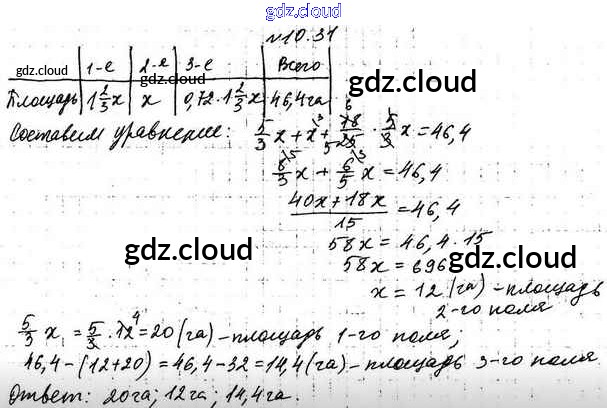 gdz.cloud
№10.31
1-е 2-е 3-е Всего
gdz.cloud
gdz.cloud
Площадь 1 2/3 x x 0,72·1 2/3 x 46,4га
Составим уравнение: 5/3 x + x + 18/25 · 5/3 x = 46,4
8/3 x + 6/5 x = 46,4
gdz.cloud
(40x+18x)/15 = 46,4
58x = 46,4·15
gdz.cloud
gdz.cloud
58x = 696
x = 12 (га) – площадь
2-го поля
5/3 x = 5/3 · 12 = 20 (га) – площадь 1-го поля;
46,4 – (12+20) = 46,4 – 32 = 14,4 (га) – площадь 3-го поля
Ответ: 20га; 12га; 14,4га.
gdz.cloud